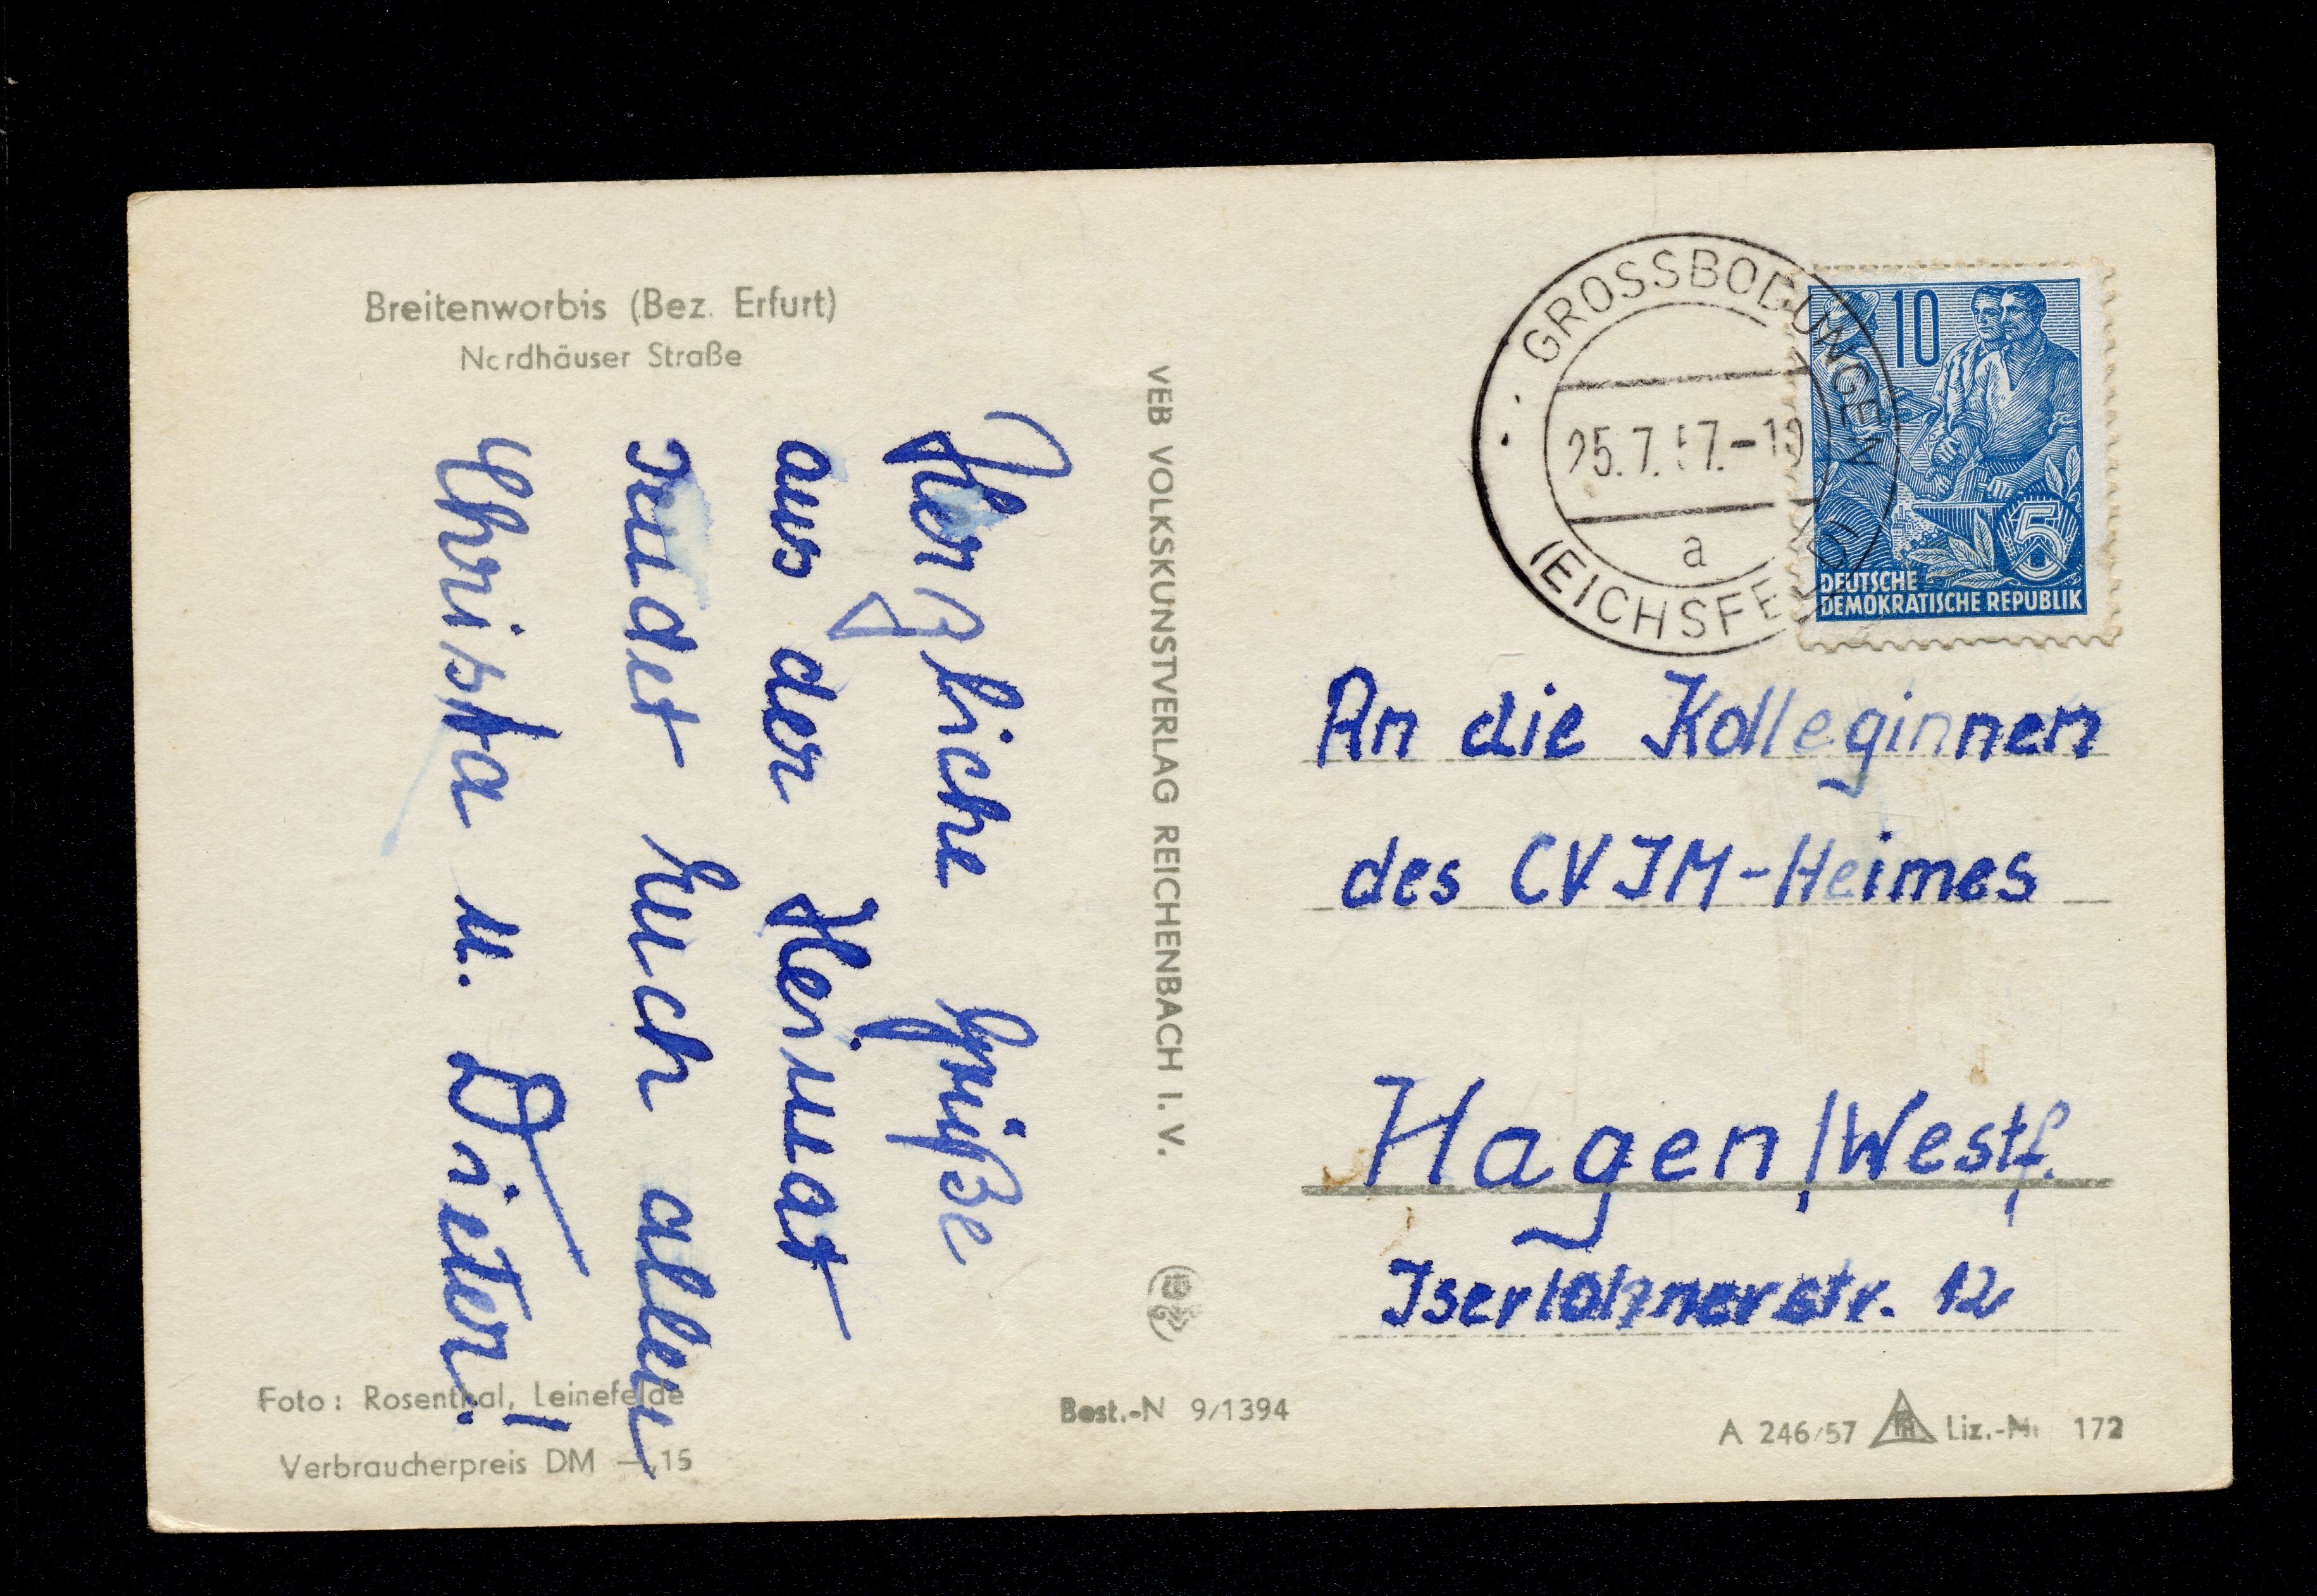 Breitenworbis (Bez. Erfurt)
Nordhäuser Straße
Herzliche Grüße
aus der Heimat
sendet Euch allen
Christa u. Dieter!
Foto: Rosenthal, Leinefelde
Verbraucherpreis DM —,15
VEB VOLKSKUNSTVERLAG REICHENBACH I. V.
Best.-N 9/1394
GROSSBODUNGEN
25.7.57.-19
a
(EICHSFELD)
10
5
DEUTSCHE
DEMOKRATISCHE REPUBLIK
An die Kolleginnen
des CVJM-Heimes
Hagen/Westf.
Iserlohnerstr. 12
A 246/57 Liz.-Nr 172